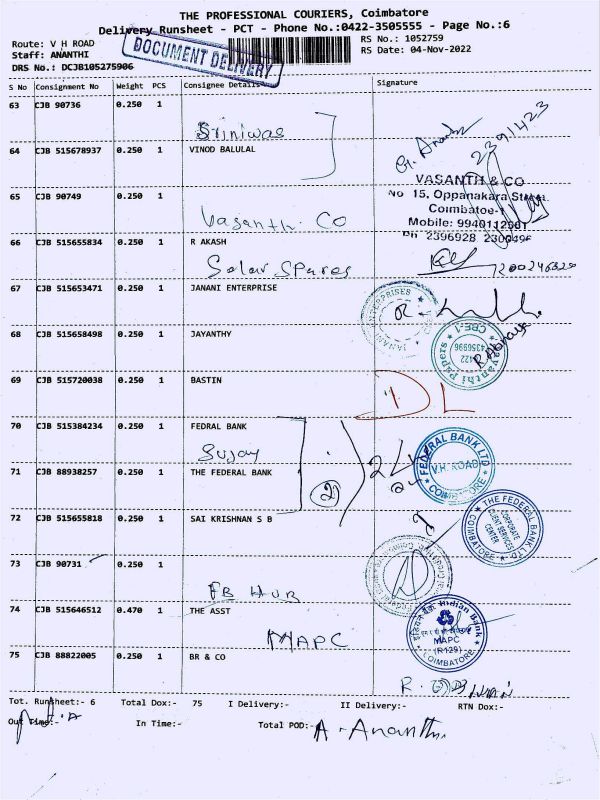 THE PROFESSIONAL COURIERS, Coimbatore
Delivery Runsheet - PCT - Phone No.:0422-3505555 - Page No.:6
Route: V H ROAD
RS No.: 1052759
Staff: ANANTHI
RS Date: 04-Nov-2022
DRS No.: DCJB105275906
DOCUMENT DELIVERY
S No Consignment No Weight PCS Consignee Details Signature
63 CJB 90736 0.250 1
Sriniwas
G. Ananth
64 CJB 515678937 0.250 1 VINOD BALULAL
VASANTH & CO
No 15, Oppanakara Street
Coimbatoe-1
Mobile: 9940112901
Ph 2396928
65 CJB 90749 0.250 1
Vasanth. CO
66 CJB 515655834 0.250 1 R AKASH
Solar Spares
67 CJB 515653471 0.250 1 JANANI ENTERPRISE
68 CJB 515658498 0.250 1 JAYANTHY
Jayanthi Papers
CBE-1
69 CJB 515720038 0.250 1 BASTIN
DL
70 CJB 515384234 0.250 1 FEDRAL BANK
Sujay
FEDERAL BANK LTD
V.H. ROAD
COIMBATORE
71 CJB 88938257 0.250 1 THE FEDERAL BANK
2
72 CJB 515655818 0.250 1 SAI KRISHNAN S B
THE FEDERAL BANK LTD
CORPORATE
CLIENT SERVICES
CENTER
COIMBATORE
73 CJB 90731 0.250 1
FB HUB
74 CJB 515646512 0.470 1 THE ASST
MAPC
Indian Bank
MAPC
(R129)
COIMBATORE
75 CJB 88822005 0.250 1 BR & CO
Tot. Runsheet:- 6 Total Dox:- 75 I Delivery:- II Delivery:- RTN Dox:-
Out Time:- In Time:- Total POD:-
A. Ananthi